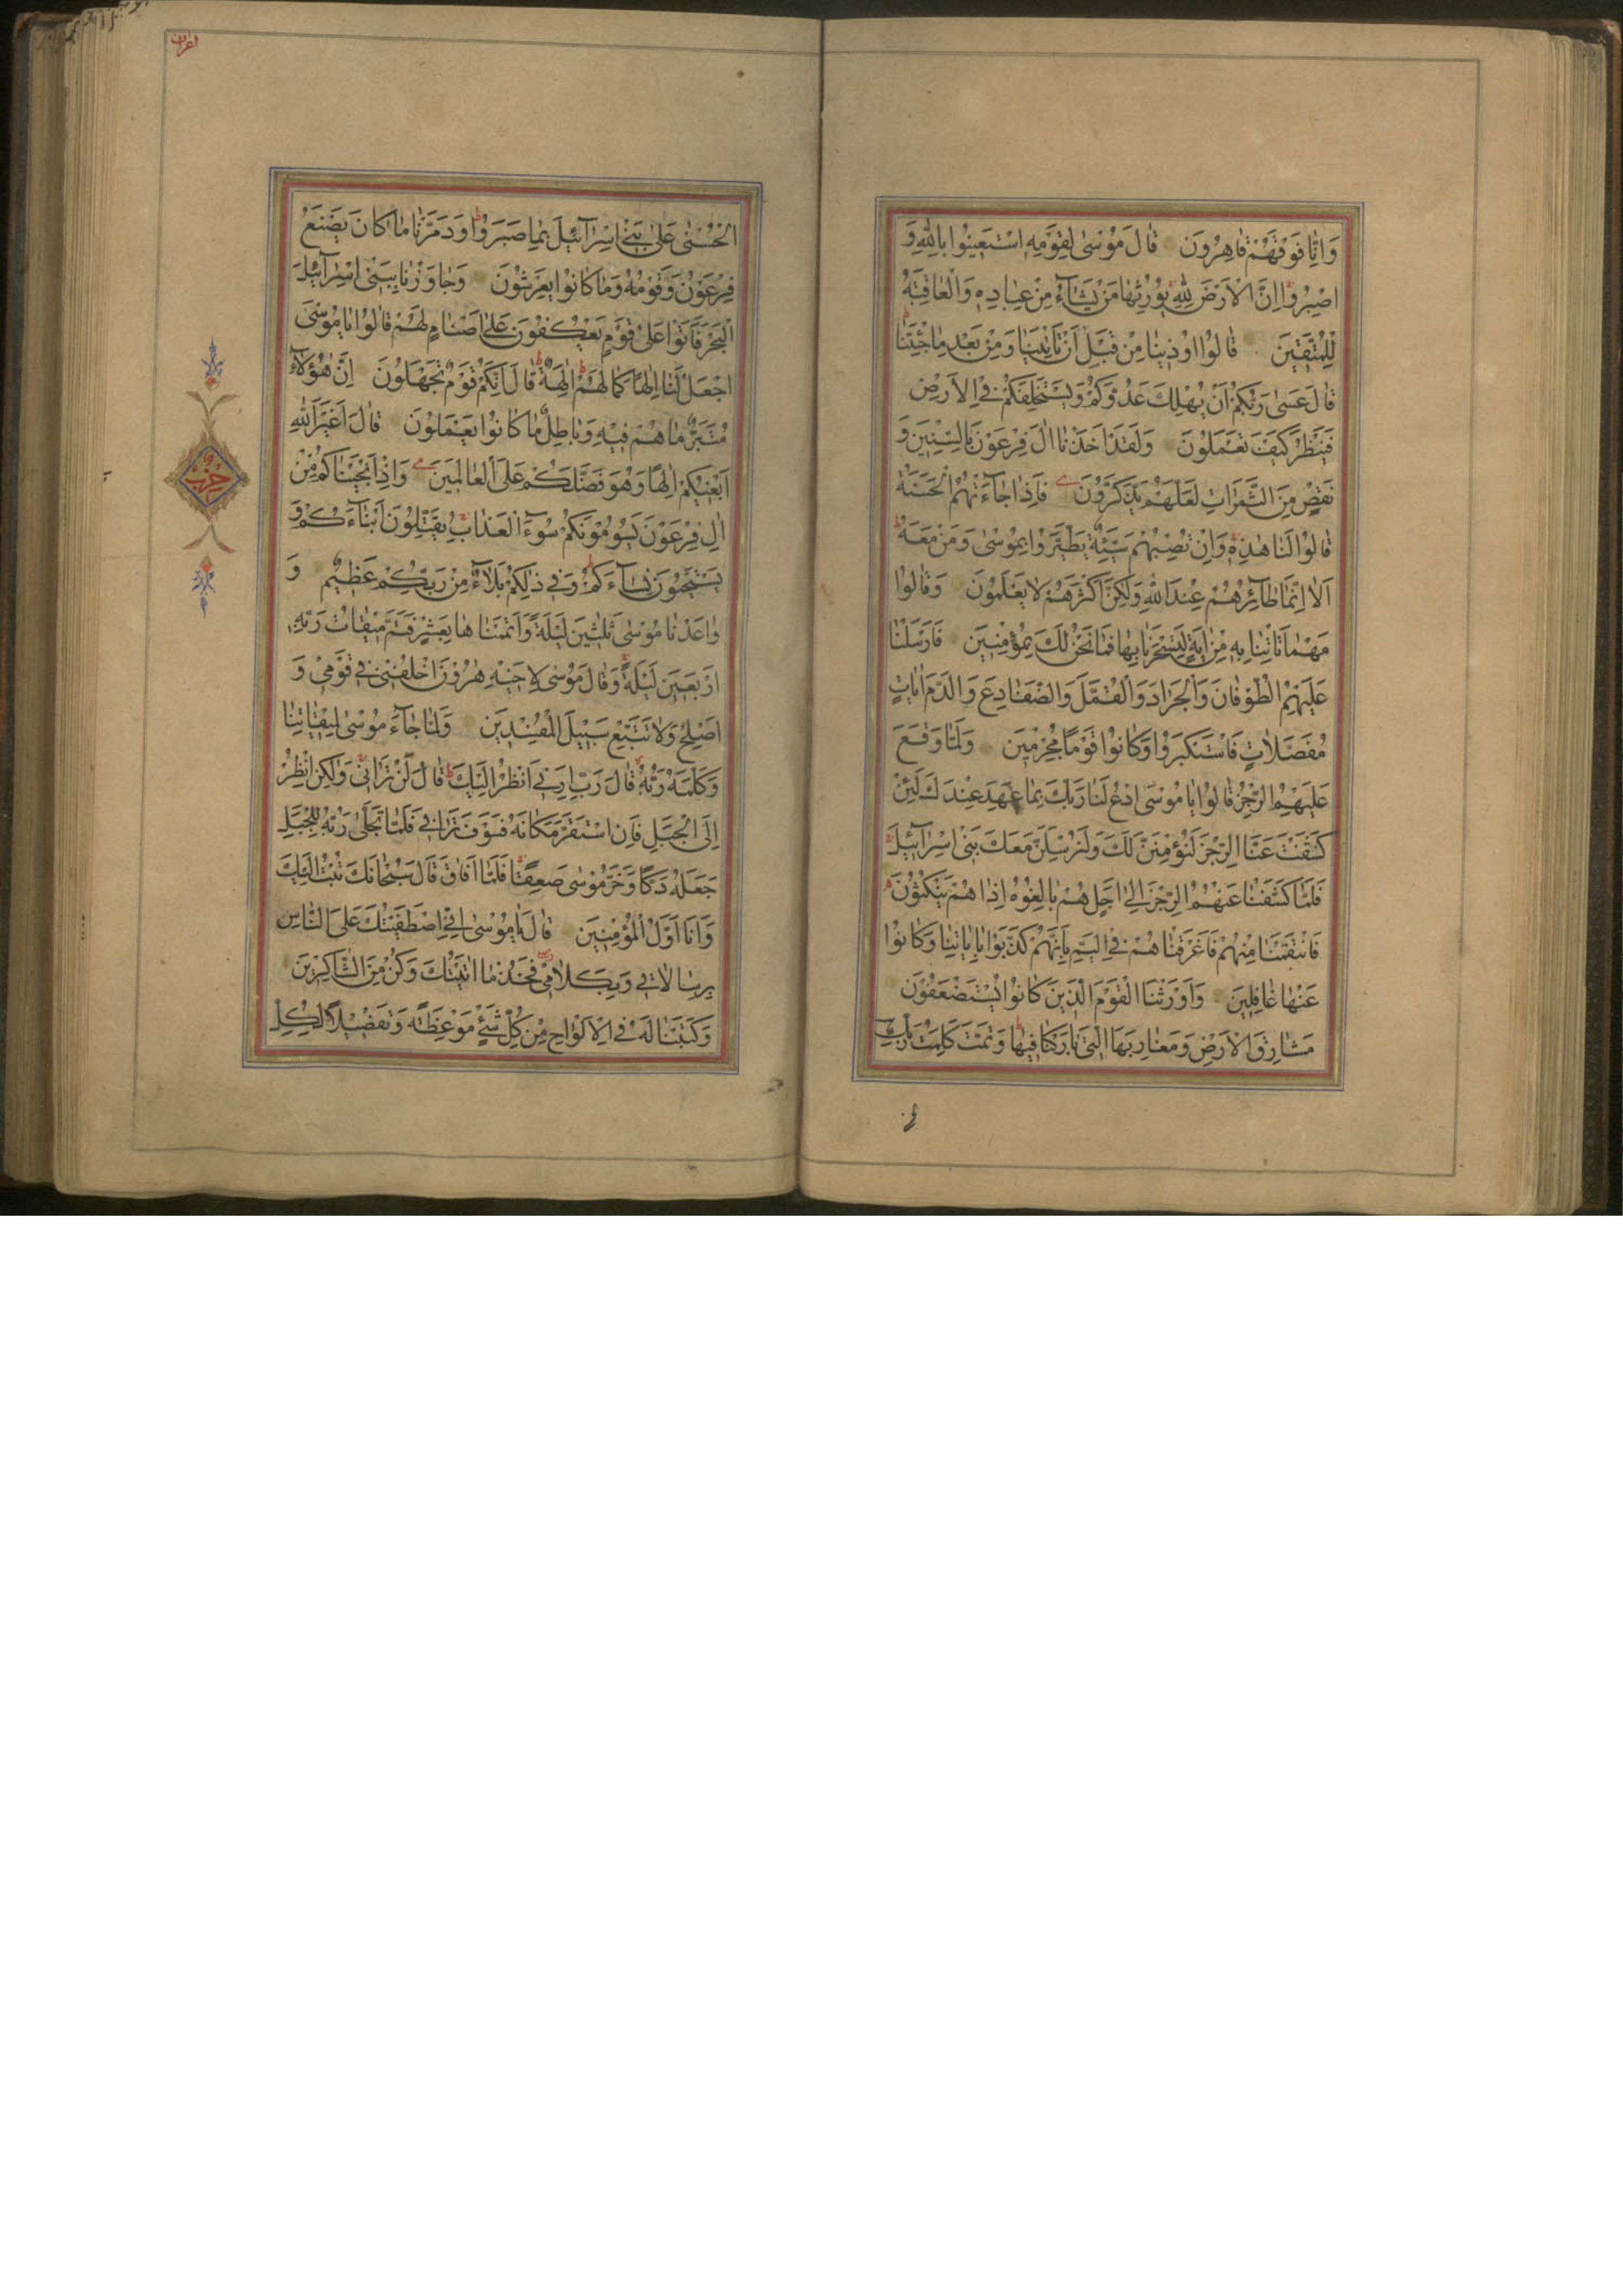 وَاِنَّا فَوْقَهُمْ قَاهِرُونَ قَالَ مُوسٰى لِقَوْمِهِ اسْتَعِينُوا بِاللّٰهِ وَ
اصْبِرُوا اِنَّ الْاَرْضَ لِلّٰهِ يُورِثُهَا مَنْ يَشَآءُ مِنْ عِبَادِهِ وَالْعَاقِبَةُ
لِلْمُتَّقِينَ قَالُوا اُوذِينَا مِنْ قَبْلِ اَنْ تَأْتِيَنَا وَمِنْ بَعْدِ مَا جِئْتَنَا
قَالَ عَسٰى رَبُّكُمْ اَنْ يُهْلِكَ عَدُوَّكُمْ وَيَسْتَخْلِفَكُمْ فِي الْاَرْضِ
فَيَنْظُرَ كَيْفَ تَعْمَلُونَ وَلَقَدْ اَخَذْنَا اٰلَ فِرْعَوْنَ بِالسِّنِينَ وَ
نَقْصٍ مِنَ الثَّمَرَاتِ لَعَلَّهُمْ يَذَّكَّرُونَ فَاِذَا جَآءَتْهُمُ الْحَسَنَةُ
قَالُوا لَنَا هٰذِهِ وَاِنْ تُصِبْهُمْ سَيِّئَةٌ يَطَّيَّرُوا بِمُوسٰى وَمَنْ مَعَهُ
اَلَا اِنَّمَا طَآئِرُهُمْ عِنْدَ اللّٰهِ وَلٰكِنَّ اَكْثَرَهُمْ لَا يَعْلَمُونَ وَقَالُوا
مَهْمَا تَأْتِنَا بِهِ مِنْ اٰيَةٍ لِتَسْحَرَنَا بِهَا فَمَا نَحْنُ لَكَ بِمُؤْمِنِينَ فَاَرْسَلْنَا
عَلَيْهِمُ الطُّوفَانَ وَالْجَرَادَ وَالْقُمَّلَ وَالضَّفَادِعَ وَالدَّمَ اٰيَاتٍ
مُفَصَّلَاتٍ فَاسْتَكْبَرُوا وَكَانُوا قَوْمًا مُجْرِمِينَ وَلَمَّا وَقَعَ
عَلَيْهِمُ الرِّجْزُ قَالُوا يَا مُوسَى ادْعُ لَنَا رَبَّكَ بِمَا عَهِدَ عِنْدَكَ لَئِنْ
كَشَفْتَ عَنَّا الرِّجْزَ لَنُؤْمِنَنَّ لَكَ وَلَنُرْسِلَنَّ مَعَكَ بَنِي اِسْرَآئِيلَ
فَلَمَّا كَشَفْنَا عَنْهُمُ الرِّجْزَ اِلٰى اَجَلٍ هُمْ بَالِغُوهُ اِذَا هُمْ يَنْكُثُونَ
فَانْتَقَمْنَا مِنْهُمْ فَاَغْرَقْنَاهُمْ فِي الْيَمِّ بِاَنَّهُمْ كَذَّبُوا بِاٰيَاتِنَا وَكَانُوا
عَنْهَا غَافِلِينَ وَاَوْرَثْنَا الْقَوْمَ الَّذِينَ كَانُوا يُسْتَضْعَفُونَ
مَشَارِقَ الْاَرْضِ وَمَغَارِبَهَا الَّتِي بَارَكْنَا فِيهَا وَتَمَّتْ كَلِمَتُ رَبِّكَ
اعراف
الْحُسْنٰى عَلٰى بَنِي اِسْرَآئِيلَ بِمَا صَبَرُوا وَدَمَّرْنَا مَا كَانَ يَصْنَعُ
فِرْعَوْنُ وَقَوْمُهُ وَمَا كَانُوا يَعْرِشُونَ وَجَاوَزْنَا بِبَنِي اِسْرَآئِيلَ
الْبَحْرَ فَاَتَوْا عَلٰى قَوْمٍ يَعْكُفُونَ عَلٰى اَصْنَامٍ لَهُمْ قَالُوا يَا مُوسَى
اجْعَلْ لَنَا اِلٰهًا كَمَا لَهُمْ اٰلِهَةٌ قَالَ اِنَّكُمْ قَوْمٌ تَجْهَلُونَ اِنَّ هٰؤُلَآءِ
مُتَبَّرٌ مَا هُمْ فِيهِ وَبَاطِلٌ مَا كَانُوا يَعْمَلُونَ قَالَ اَغَيْرَ اللّٰهِ
اَبْغِيكُمْ اِلٰهًا وَهُوَ فَضَّلَكُمْ عَلَى الْعَالَمِينَ وَاِذْ اَنْجَيْنَاكُمْ مِنْ
اٰلِ فِرْعَوْنَ يَسُومُونَكُمْ سُوٓءَ الْعَذَابِ يُقَتِّلُونَ اَبْنَآءَكُمْ وَ
يَسْتَحْيُونَ نِسَآءَكُمْ وَفِي ذٰلِكُمْ بَلَآءٌ مِنْ رَبِّكُمْ عَظِيمٌ وَ
وَاعَدْنَا مُوسٰى ثَلٰثِينَ لَيْلَةً وَاَتْمَمْنَاهَا بِعَشْرٍ فَتَمَّ مِيقَاتُ رَبِّهِ
اَرْبَعِينَ لَيْلَةً وَقَالَ مُوسٰى لِاَخِيهِ هٰرُونَ اخْلُفْنِي فِي قَوْمِي وَ
اَصْلِحْ وَلَا تَتَّبِعْ سَبِيلَ الْمُفْسِدِينَ وَلَمَّا جَآءَ مُوسٰى لِمِيقَاتِنَا
وَكَلَّمَهُ رَبُّهُ قَالَ رَبِّ اَرِنِي اَنْظُرْ اِلَيْكَ قَالَ لَنْ تَرَانِي وَلٰكِنِ انْظُرْ
اِلَى الْجَبَلِ فَاِنِ اسْتَقَرَّ مَكَانَهُ فَسَوْفَ تَرَانِي فَلَمَّا تَجَلّٰى رَبُّهُ لِلْجَبَلِ
جَعَلَهُ دَكًّا وَخَرَّ مُوسٰى صَعِقًا فَلَمَّا اَفَاقَ قَالَ سُبْحَانَكَ تُبْتُ اِلَيْكَ
وَاَنَا اَوَّلُ الْمُؤْمِنِينَ قَالَ يَا مُوسٰى اِنِّي اصْطَفَيْتُكَ عَلَى النَّاسِ
بِرِسَالَاتِي وَبِكَلَامِي فَخُذْ مَا اٰتَيْتُكَ وَكُنْ مِنَ الشَّاكِرِينَ
وَكَتَبْنَا لَهُ فِي الْاَلْوَاحِ مِنْ كُلِّ شَيْءٍ مَوْعِظَةً وَتَفْصِيلًا لِكُلِّ
حزب